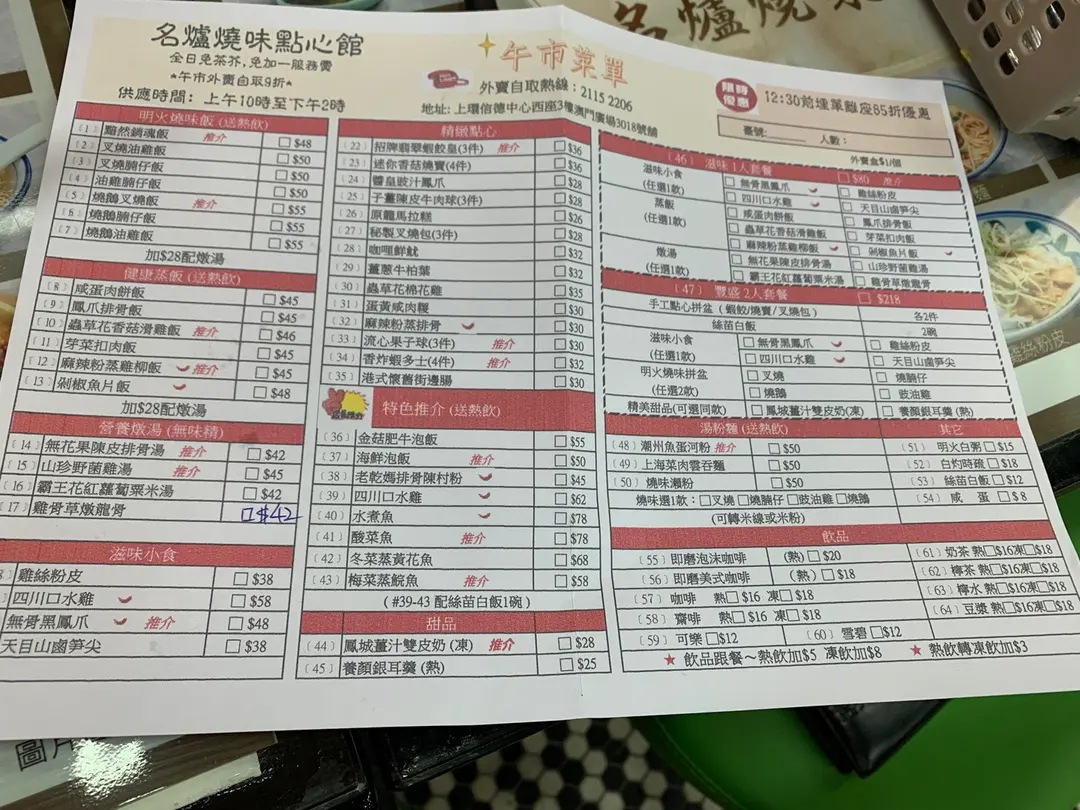 名爐燒味點心館
全日免茶芥,免加一服務費
*午市外賣自取9折*
供應時間: 上午10時至下午2時
午市菜單
外賣自取熱線: 2115 2206
地址: 上環信德中心西座3樓澳門廣場3018號舖
限時優惠
12:30前埋單離座85折優惠
臺號: 人數:
外賣盒$1/個
明火燒味飯 (送熱飲)
(1) 黯然銷魂飯 推介 $48
(2) 叉燒油雞飯 $50
(3) 叉燒腩仔飯 $50
(4) 油雞腩仔飯 $50
(5) 燒鵝叉燒飯 推介 $55
(6) 燒鵝腩仔飯 $55
(7) 燒鵝油雞飯 $55
加$28配燉湯
健康蒸飯 (送熱飲)
(8) 咸蛋肉餅飯 $45
(9) 鳳爪排骨飯 $45
(10) 蟲草花香菇滑雞飯 推介 $46
(11) 芽菜扣肉飯 $45
(12) 麻辣粉蒸雞柳飯 推介 $45
(13) 剁椒魚片飯 $48
加$28配燉湯
營養燉湯 (無味精)
(14) 無花果陳皮排骨湯 推介 $42
(15) 山珍野菌雞湯 推介 $45
(16) 霸王花紅蘿蔔粟米湯 $42
(17) 雞骨草燉龍骨 $42
滋味小食
雞絲粉皮 $38
四川口水雞 $58
無骨黑鳳爪 推介 $48
天目山鹵筍尖 $38
精緻點心
(22) 招牌翡翠蝦餃皇(3件) 推介 $36
(23) 迷你香菇燒賣(4件) $36
(24) 醬皇豉汁鳳爪 $28
(25) 子薑陳皮牛肉球(3件) $28
(26) 原籠馬拉糕 $26
(27) 秘製叉燒包(3件) $28
(28) 咖哩鮮魷 $32
(29) 薑蔥牛柏葉 $32
(30) 蟲草花棉花雞 $35
(31) 蛋黃咸肉糭 $30
(32) 麻辣粉蒸排骨 $30
(33) 流心果子球(3件) 推介 $30
(34) 香炸蝦多士(4件) 推介 $32
(35) 港式懷舊街邊腸 $30
特色推介 (送熱飲)
(36) 金菇肥牛泡飯 $55
(37) 海鮮泡飯 推介 $50
(38) 老乾媽排骨陳村粉 $45
(39) 四川口水雞 $62
(40) 水煮魚 $78
(41) 酸菜魚 推介 $78
(42) 冬菜蒸黃花魚 $68
(43) 梅菜蒸鯇魚 推介 $58
(#39-43 配絲苗白飯1碗)
甜品
(44) 鳳城薑汁雙皮奶 (凍) 推介 $28
(45) 養顏銀耳羹 (熱) $25
(46) 滋味 1人套餐 $80 推介
滋味小食 無骨黑鳳爪 雞絲粉皮
(任選1款) 四川口水雞 天目山鹵筍尖
蒸飯 咸蛋肉餅飯 鳳爪排骨飯
(任選1款) 蟲草花香菇滑雞飯 芽菜扣肉飯
麻辣粉蒸雞柳飯 剁椒魚片飯
燉湯 無花果陳皮排骨湯 山珍野菌雞湯
(任選1款) 霸王花紅蘿蔔粟米湯 雞骨草燉龍骨
(47) 豐盛 2人套餐 $218
手工點心拼盆 (蝦餃/燒賣/叉燒包) 各2件
絲苗白飯 2碗
滋味小食 無骨黑鳳爪 雞絲粉皮
(任選1款) 四川口水雞 天目山鹵筍尖
明火燒味拼盆 叉燒 燒腩仔
(任選2款) 燒鵝 豉油雞
精美甜品(可選同款) 鳳城薑汁雙皮奶(凍) 養顏銀耳羹 (熱)
湯粉麵 (送熱飲)
(48) 潮州魚蛋河粉 推介 $50
(49) 上海菜肉雲吞麵 $50
(50) 燒味瀨粉 $50
燒味選1款: 叉燒 燒腩仔 豉油雞 燒鵝
(可轉米線或米粉)
其它
(51) 明火白粥 $15
(52) 白灼時蔬 $18
(53) 絲苗白飯 $12
(54) 咸 蛋 $8
飲品
(55) 即磨泡沫咖啡 (熱) $20
(56) 即磨美式咖啡 (熱) $18
(57) 咖啡 熱 $16 凍 $18
(58) 齋啡 熱 $16 凍 $18
(59) 可樂 $12 (60) 雪碧 $12
(61) 奶茶 熱 $16 凍 $18
(62) 檸茶 熱 $16 凍 $18
(63) 檸水 熱 $16 凍 $18
(64) 豆漿 熱 $16 凍 $18
★ 飲品跟餐～熱飲加$5 凍飲加$8 ★ 熱飲轉凍飲加$3
雞絲粉皮